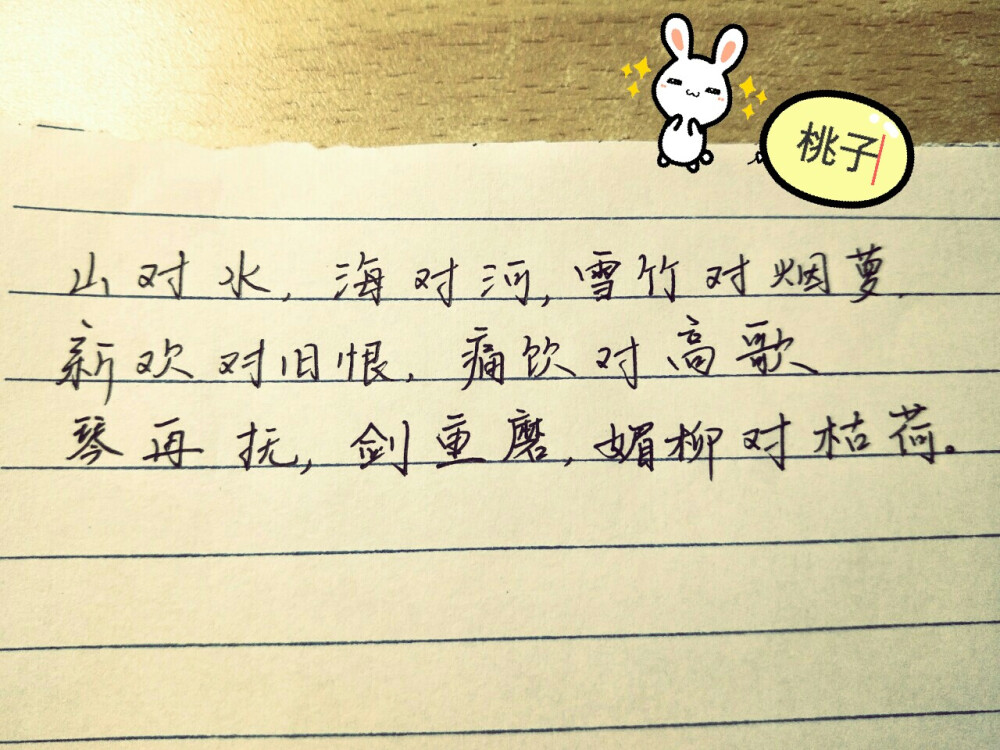 桃子
山对水,海对河,雪竹对烟萝.
新欢对旧恨,痛饮对高歌
琴再抚,剑重磨,媚柳对枯荷。